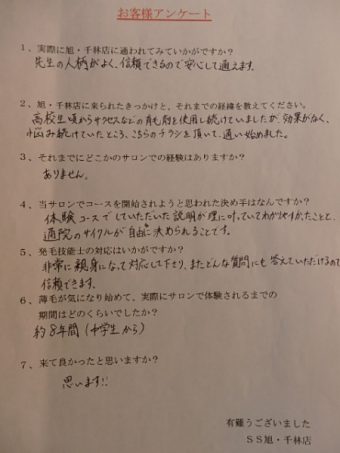 お客様アンケート
1、実際に旭・千林店に通われてみていかがですか？
先生の人柄がよく、信頼できるので安心して通えます。
2、旭・千林店に来られたきっかけと、それまでの経緯を教えてください。
高校生頃からサクセスなどの育毛剤を使用し続けていましたが、効果がなく、
悩み続けていたところ、こちらのチラシを頂いて、通い始めました。
3、それまでにどこかのサロンでの経験はありますか？
ありません。
4、当サロンでコースを開始されようと思われた決め手はなんですか？
体験コースでしていただいた説明が理に叶っていてわかりやすかたことと、
通院のサイクルが自由に決められることです。
5、発毛技能士の対応はいかがですか？
非常に親身になって対応して下さり、またどんな質問にも答えていただけるので
信頼できます。
6、薄毛が気になり始めて、実際にサロンで体験されるまでの
期間はどのくらいでしたか？
約8年間（中学生から）
7、来て良かったと思いますか？
思います!!
有難うございました
SS旭・千林店